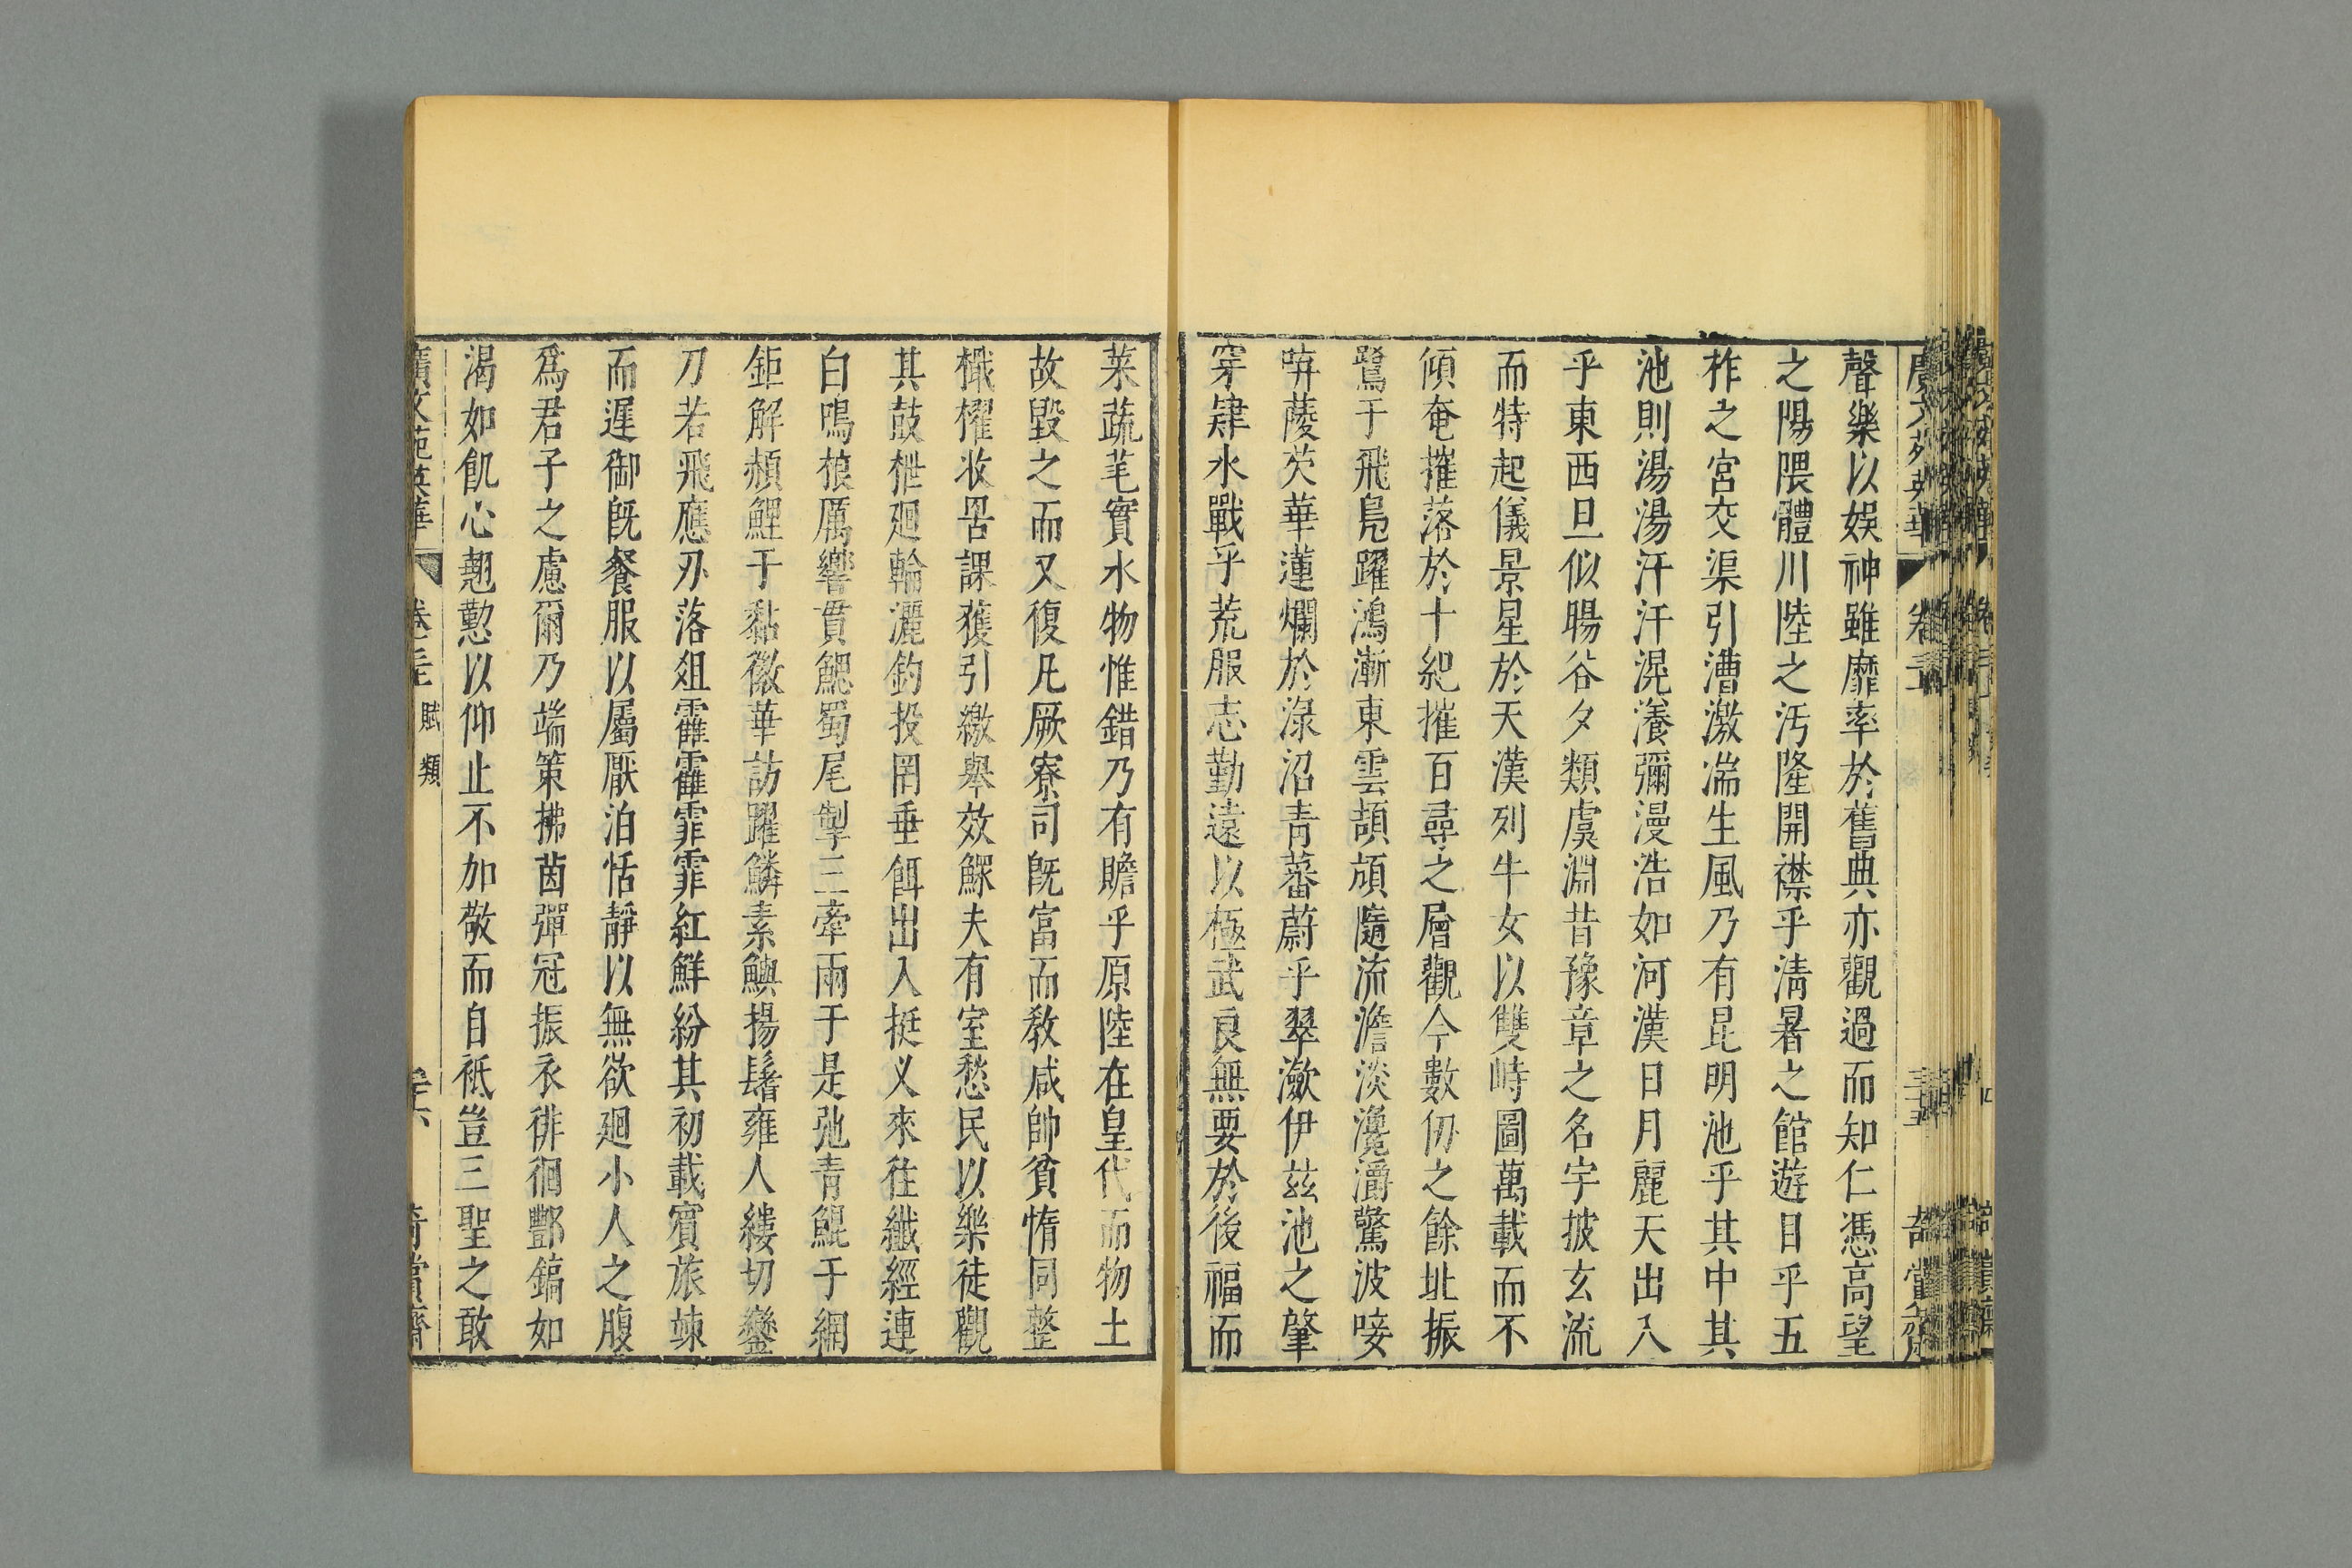 聲樂以娛神雖靡率於舊典亦觀過而知仁憑高望
之陽隈體川陸之汚隆開襟乎清暑之館遊目乎五
柞之宮交渠引漕激湍生風乃有昆明池乎其中其
池則湯湯汗汗滉瀁彌漫浩如河漢日月麗天出入
乎東西旦似暘谷夕類虞淵昔豫章之名宇披玄流
而特起儀景星於天漢列牛女以雙峙圖萬載而不
傾奄摧落於十紀摧百尋之層觀今數仞之餘址振
鷺于飛鳧躍鴻漸東雲頡頏隨流澹淡瀺灂驚波唼
喋菱芡華蓮爛於淥沼青蕃蔚乎翠瀲伊茲池之肇
穿肄水戰乎荒服志勤遠以極武良無要於後福而
菜蔬芼實水物惟錯乃有贍乎原陸在皇代而物土
故毀之而又復凡厥寮司既富而教咸帥貧惰同整
檝櫂收罟課獲引繳舉效鰥夫有室愁民以樂徒觀
其鼓枻廻輪灑釣投罔垂餌出入挺叉來往纖經連
白鳴桹厲響貫鰓𦊙尾掣三牽兩于是弛青鯤于網
鉅解赬鯉于黏徽華訪躍鱗素鱮揚鬐雍人縷切鑾
刀若飛應刃落俎霍霍霏霏紅鮮紛其初載賓旅竦
而遲御既餐服以屬厭泊恬靜以無欲廻小人之腹
爲君子之慮爾乃端策拂茵彈冠振衣徘徊酆鎬如
渴如飢心翹懃以仰止不加敬而自祇豈三聖之敢
廣文苑英華 卷三 賦類